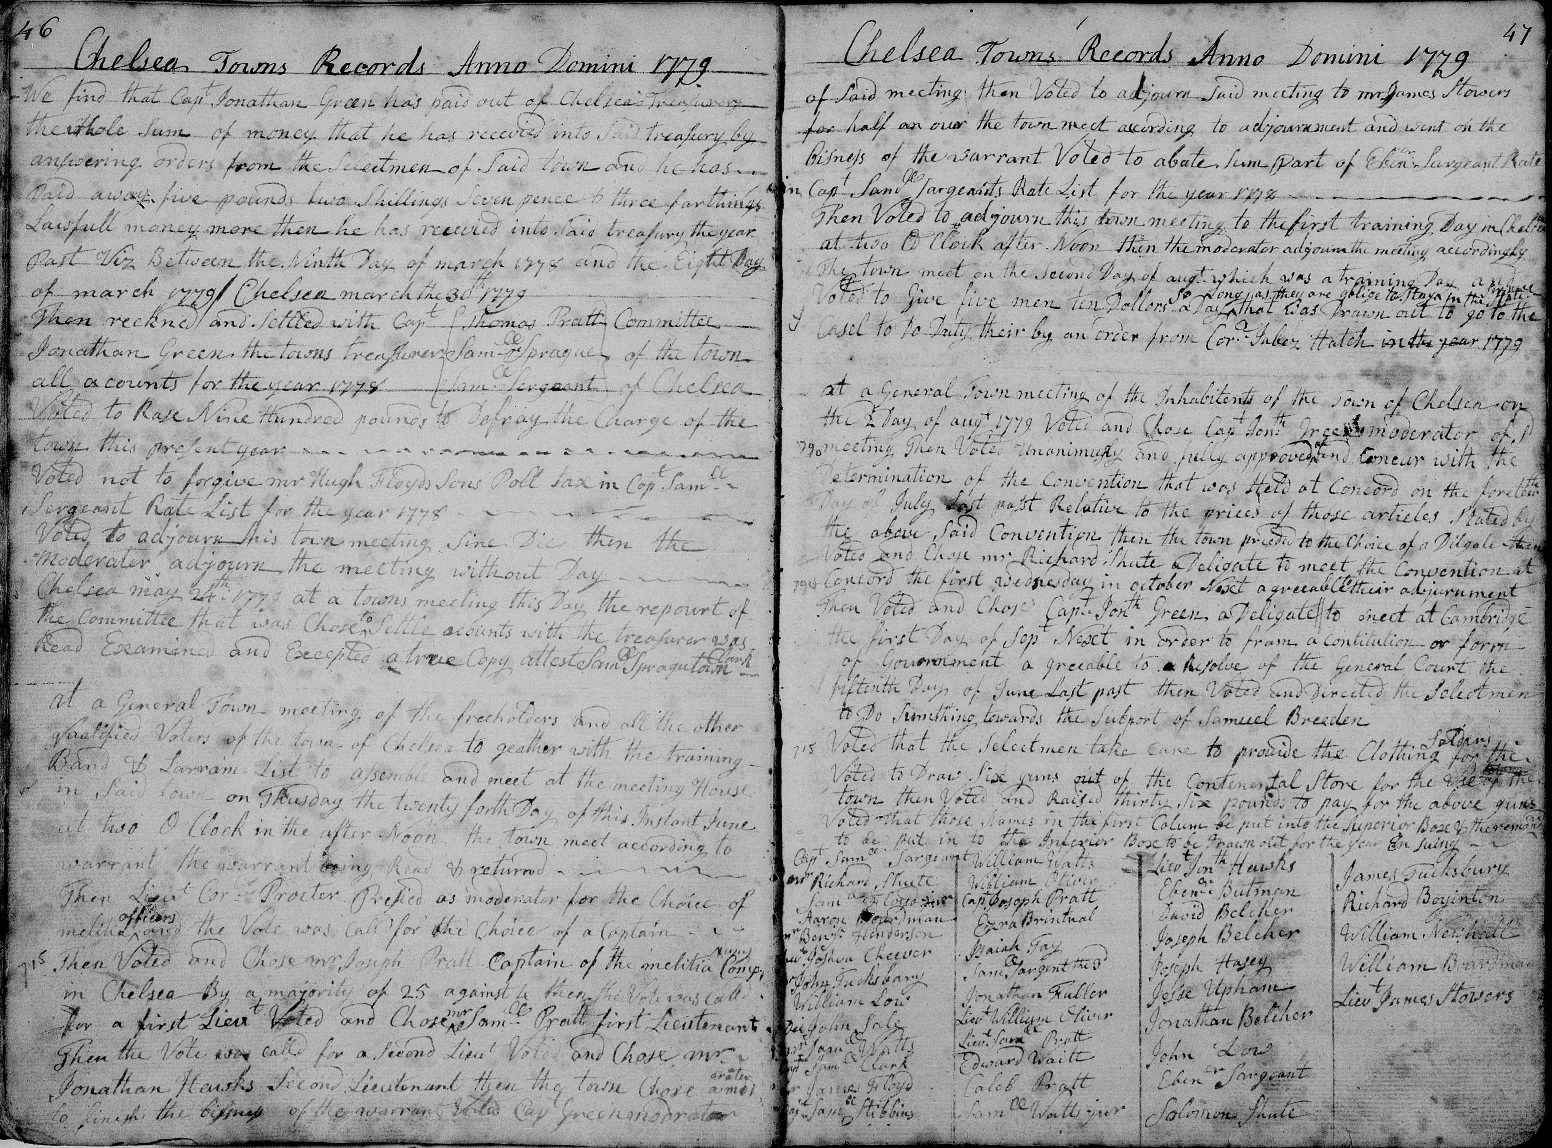 46
Chelsea Towns Records Anno Domini 1779
We find that Capt Jonathan Green has paid out of Chelsea's Treasurery
the whole sum of money that he has received into Said treasury by
answering orders from the Selectmen of Said town and he has
Paid away five pounds two Shillings Seven pence & three farthings
Lawfull money more then he has received into Said treasury the year
Past Viz Between the Ninth Day of march 1778 and the Eight Day
of march 1779 / Chelsea march the 30th 1779
Then reckned and Settled with Capt Thomas Pratt Committee
Jonathan Green the towns treasurer Samll Sprague of the town
all acounts for the year 1778 Samll Sergeant of Chelsea
Voted to Rase Nine Hundred pounds to Defray the Charge of the
town this present year
Voted not to forgive mr Hugh Floyds Sons Poll tax in Capt Samll
Sergeant Rate List for the year 1778
Voted to adjourn this town meeting Sine Die then the
Moderater adjourn the meeting without Day
Chelsea may 24th 1779 at a towns meeting this Day the repourt of
the Committee that was Chose to Settle acounts with the treasurer was
Read Examined and Excepted a true Copy attest Samll Sprague town Clark
at a General Town meeting of the freeholders and all the other
Qualified Voters of the town of Chelsea to geather with the training
Band & Larram List to assemble and meet at the meeting House
in Said town on Thusday the twenty forth Day of this Instant June
at two O Clock in the after Noon the town meet according to
warrant the warrant being Read & returnd
Then Lieut Corl Procter Presied as moderator for the Choice of
melitia officers and the Vote was Calld for the Choice of a Captain
718 Then Voted and Chose mr Joseph Pratt Captain of the melitia Compy
in Chelsea By a majority of 25 against 4 then the Vote was Calld
for a first Lieut Voted and Chose mr Samll Pratt first Lieutenant
Then the Vote was calld for a Second Lieut Voted and Chose mr
Jonathan Hawks Second Lieutenant then the town Chose a moderater
to finish the bisness of the warrant Voted Capt Green moderator
47
Chelsea Towns Records Anno Domini 1779
of Said meeting then Voted to adjourn Said meeting to mr James Stowers
for half an our the town meet according to adjournment and went on the
bisness of the warrant Voted to abate Sum part of Ebenr Sargeant Rate
in Capt Samll Sargeants Rate List for the year 1778
Then Voted to adjourn this town meeting to the first training Day in Chelsea
at two O Clock after Noon then the moderator adjourn the meeting accordingly
The town meet on the Second Day of augt which was a training Day and
Voted to Give five men ten Dollars a Day So Long as they are oblige to Stay in the Service that was Drawn out to go to the
Casel to do Duty their by an order from Cor Jabez Hatch in the year 1779
at a General Town meeting of the Inhabitents of the Town of Chelsea on
the 2 Day of augt 1779 Voted and Chose Capt Jonth Green moderator of Sd
meeting Then Voted Unanimusly and fully approved of and Concur with the
Determination of the Convention that was Held at Concord on the forteenth
Day of July Last past Relative to the prices of those articles Stated by
the above Said Convention then the town preceded to the Choice of a Diligate then
Voted and Chose mr Richard Shute a Deligate to meet the Convention at
Concord the first wednesday in october Next agreeable their adjurnment
Then Voted and Chose Capt Jonth Green a Deligate to meet at Cambridge
the first Day of Sept Next in order to fram a Contitution or form
of Government a greeable to a Resolve of the General Court the
fifteenth Day of June Last past then Voted and Directed the Selectmen
to Do Sumthing towards the Subport of Samuel Breeden
718 Voted that the Selectmen take care to provide the Clothing for the Solders
Voted to Draw Six guns out of the Contenental Store for the use of the
town then Voted and Raised thirty Six pounds to pay for the above guns
Voted that those Names in the first Colum be put into the Superior Box & the
to be put in to the Inferior Box to be Drawn out for the year En Suing
Capt Samll Sargeant
mr Richard Shute
Aaron Boardman
mr Benjn Henderson
Joshua Cheever
mr John Tucksbary
William Low
John Sale
Samll Watts
Samll Clark
James Floyd
Samll Stibbins
William Watts
William Oliver
Capt Joseph Pratt
Ezra Brintnal
Isaiah Tay
Samll Sargent the 3d
Jonathan Fuller
Lieut William Oliver
Lieut Samll Pratt
Edward Waitt
Caleb Pratt
Samll Watts jur
Lieut Jonth Hawks
Ebenr Butman
David Belcher
Joseph Belcher
Joseph Hasey
Jesse Upham
Jonathan Belcher
John Low
Ebenr Sargeant
Solomon Shute
James Tucksbury
Richard Boyinton
William Newhall
William Boardman
Lieut James Stowers